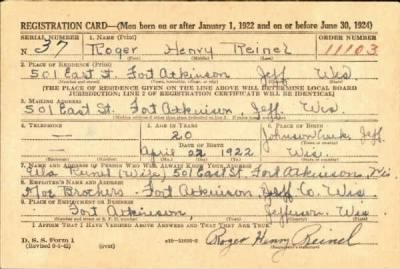 REGISTRATION CARD—(Men born on or after January 1, 1922 and on or before June 30, 1924)
SERIAL NUMBER 1. NAME (Print) ORDER NUMBER
N. 37 Roger Henry Reinel 11103
(First) (Middle) (Last)
2. PLACE OF RESIDENCE (Print)
501 East St. Fort Atkinson Jeff Wis.
[THE PLACE OF RESIDENCE GIVEN ON THE LINE ABOVE WILL DETERMINE LOCAL BOARD
JURISDICTION; LINE 2 OF REGISTRATION CERTIFICATE WILL BE IDENTICAL]
3. MAILING ADDRESS
501 East St. Fort Atkinson, Jeff. Wis.
4. TELEPHONE 5. AGE IN YEARS 6. PLACE OF BIRTH
20 Johnson Creek, Jeff.
DATE OF BIRTH
April 02 1922 Wis.
7. NAME AND ADDRESS OF PERSON WHO WILL ALWAYS KNOW YOUR ADDRESS
Reinel (Wife) 501 East St. Fort Atkinson, Wis.
8. EMPLOYER'S NAME AND ADDRESS
Brothers Fort Atkinson, Jeff Co. Wis
9. PLACE OF EMPLOYMENT OR BUSINESS
Fort Atkinson, Jefferson Wis.
I AFFIRM THAT I HAVE VERIFIED ABOVE ANSWERS AND THAT THEY ARE TRUE.
D. S. S. Form 1
Roger Henry Reinel